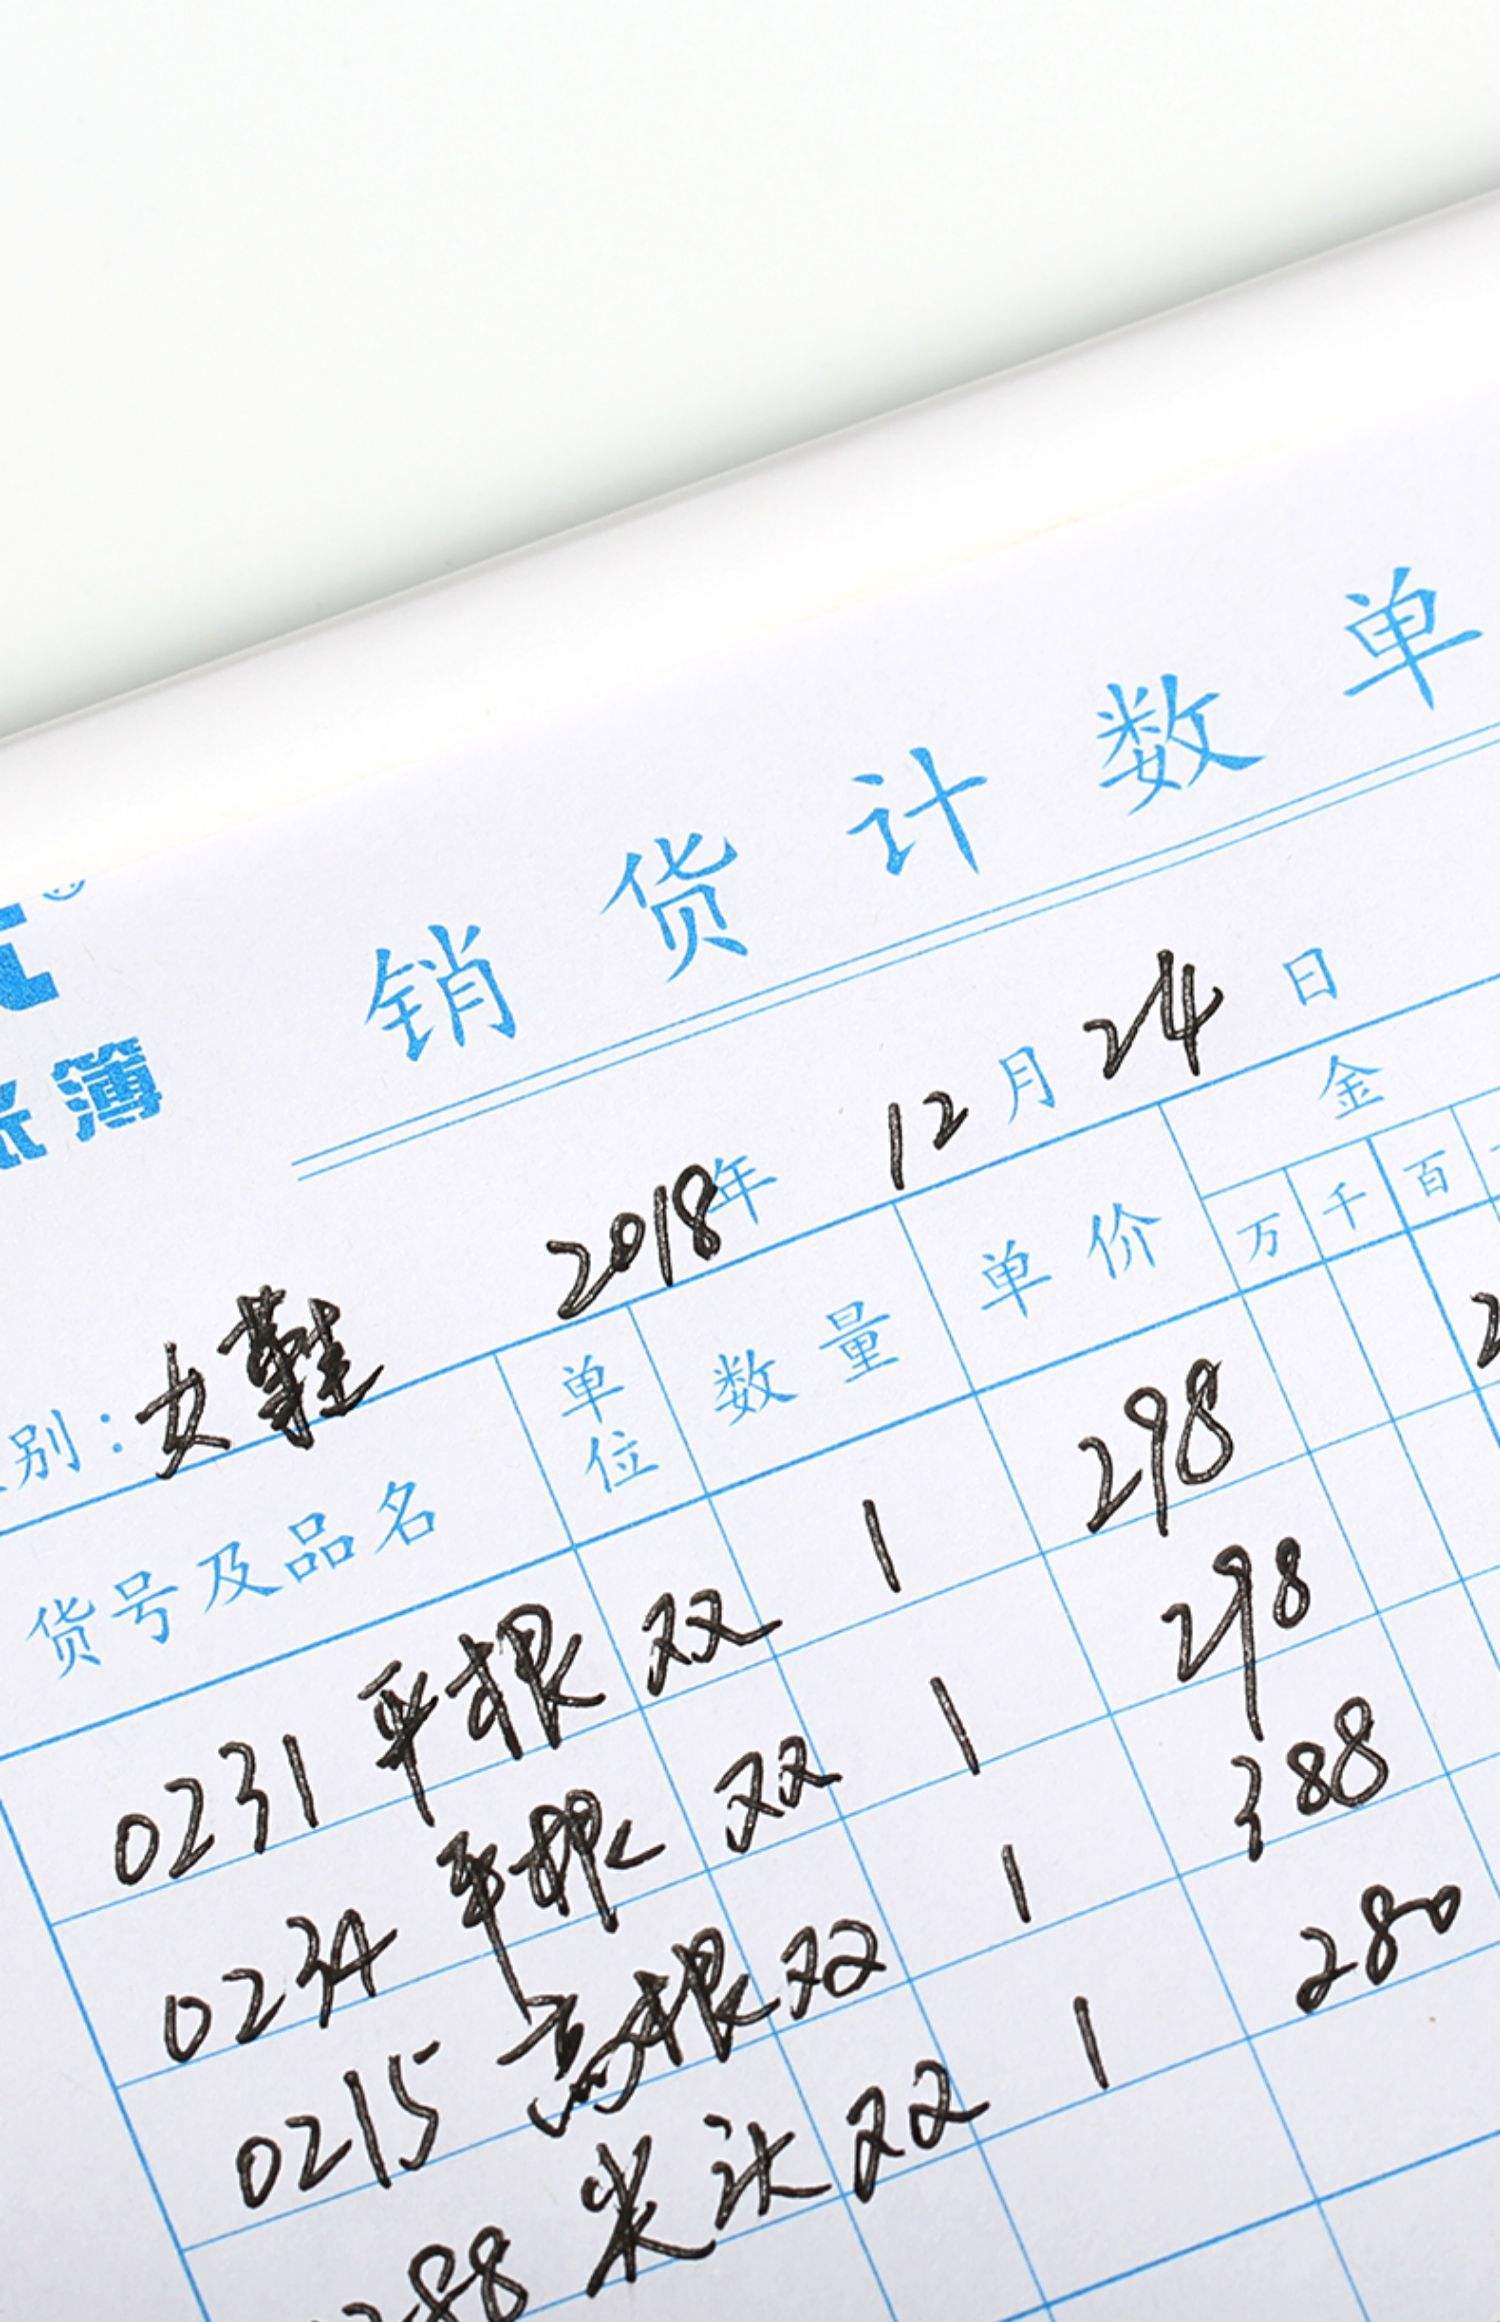 销货计数单
账簿
2018年 12月24日
别：女鞋
货号及品名 单位 数量 单价 金
万 千 百
0231 平根 双 1 298
0234 平根 双 1 298
0215 高根 双 1 388
0288 尖头 双 1 280